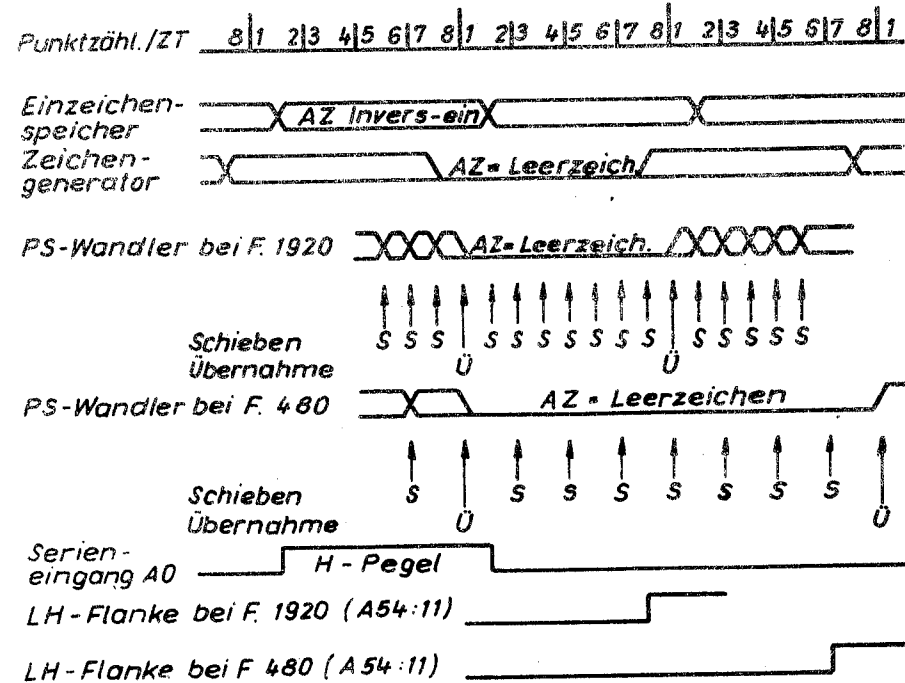 Punktzähl./ZT 8|1 2|3 4|5 6|7 8|1 2|3 4|5 6|7 8|1 2|3 4|5 6|7 8|1
Einzeichen-
speicher
AZ Invers-ein
Zeichen-
generator
AZ = Leerzeich.
PS-Wandler bei F. 1920 AZ=Leerzeich.
Schieben S S S S S S S S S S S S S S S
Übernahme Ü Ü
PS-Wandler bei F. 480 AZ = Leerzeichen
Schieben S S S S S S S S
Übernahme Ü Ü
Serien-
eingang A0
H - Pegel
LH-Flanke bei F. 1920 (A54:11)
LH-Flanke bei F 480 (A54:11)